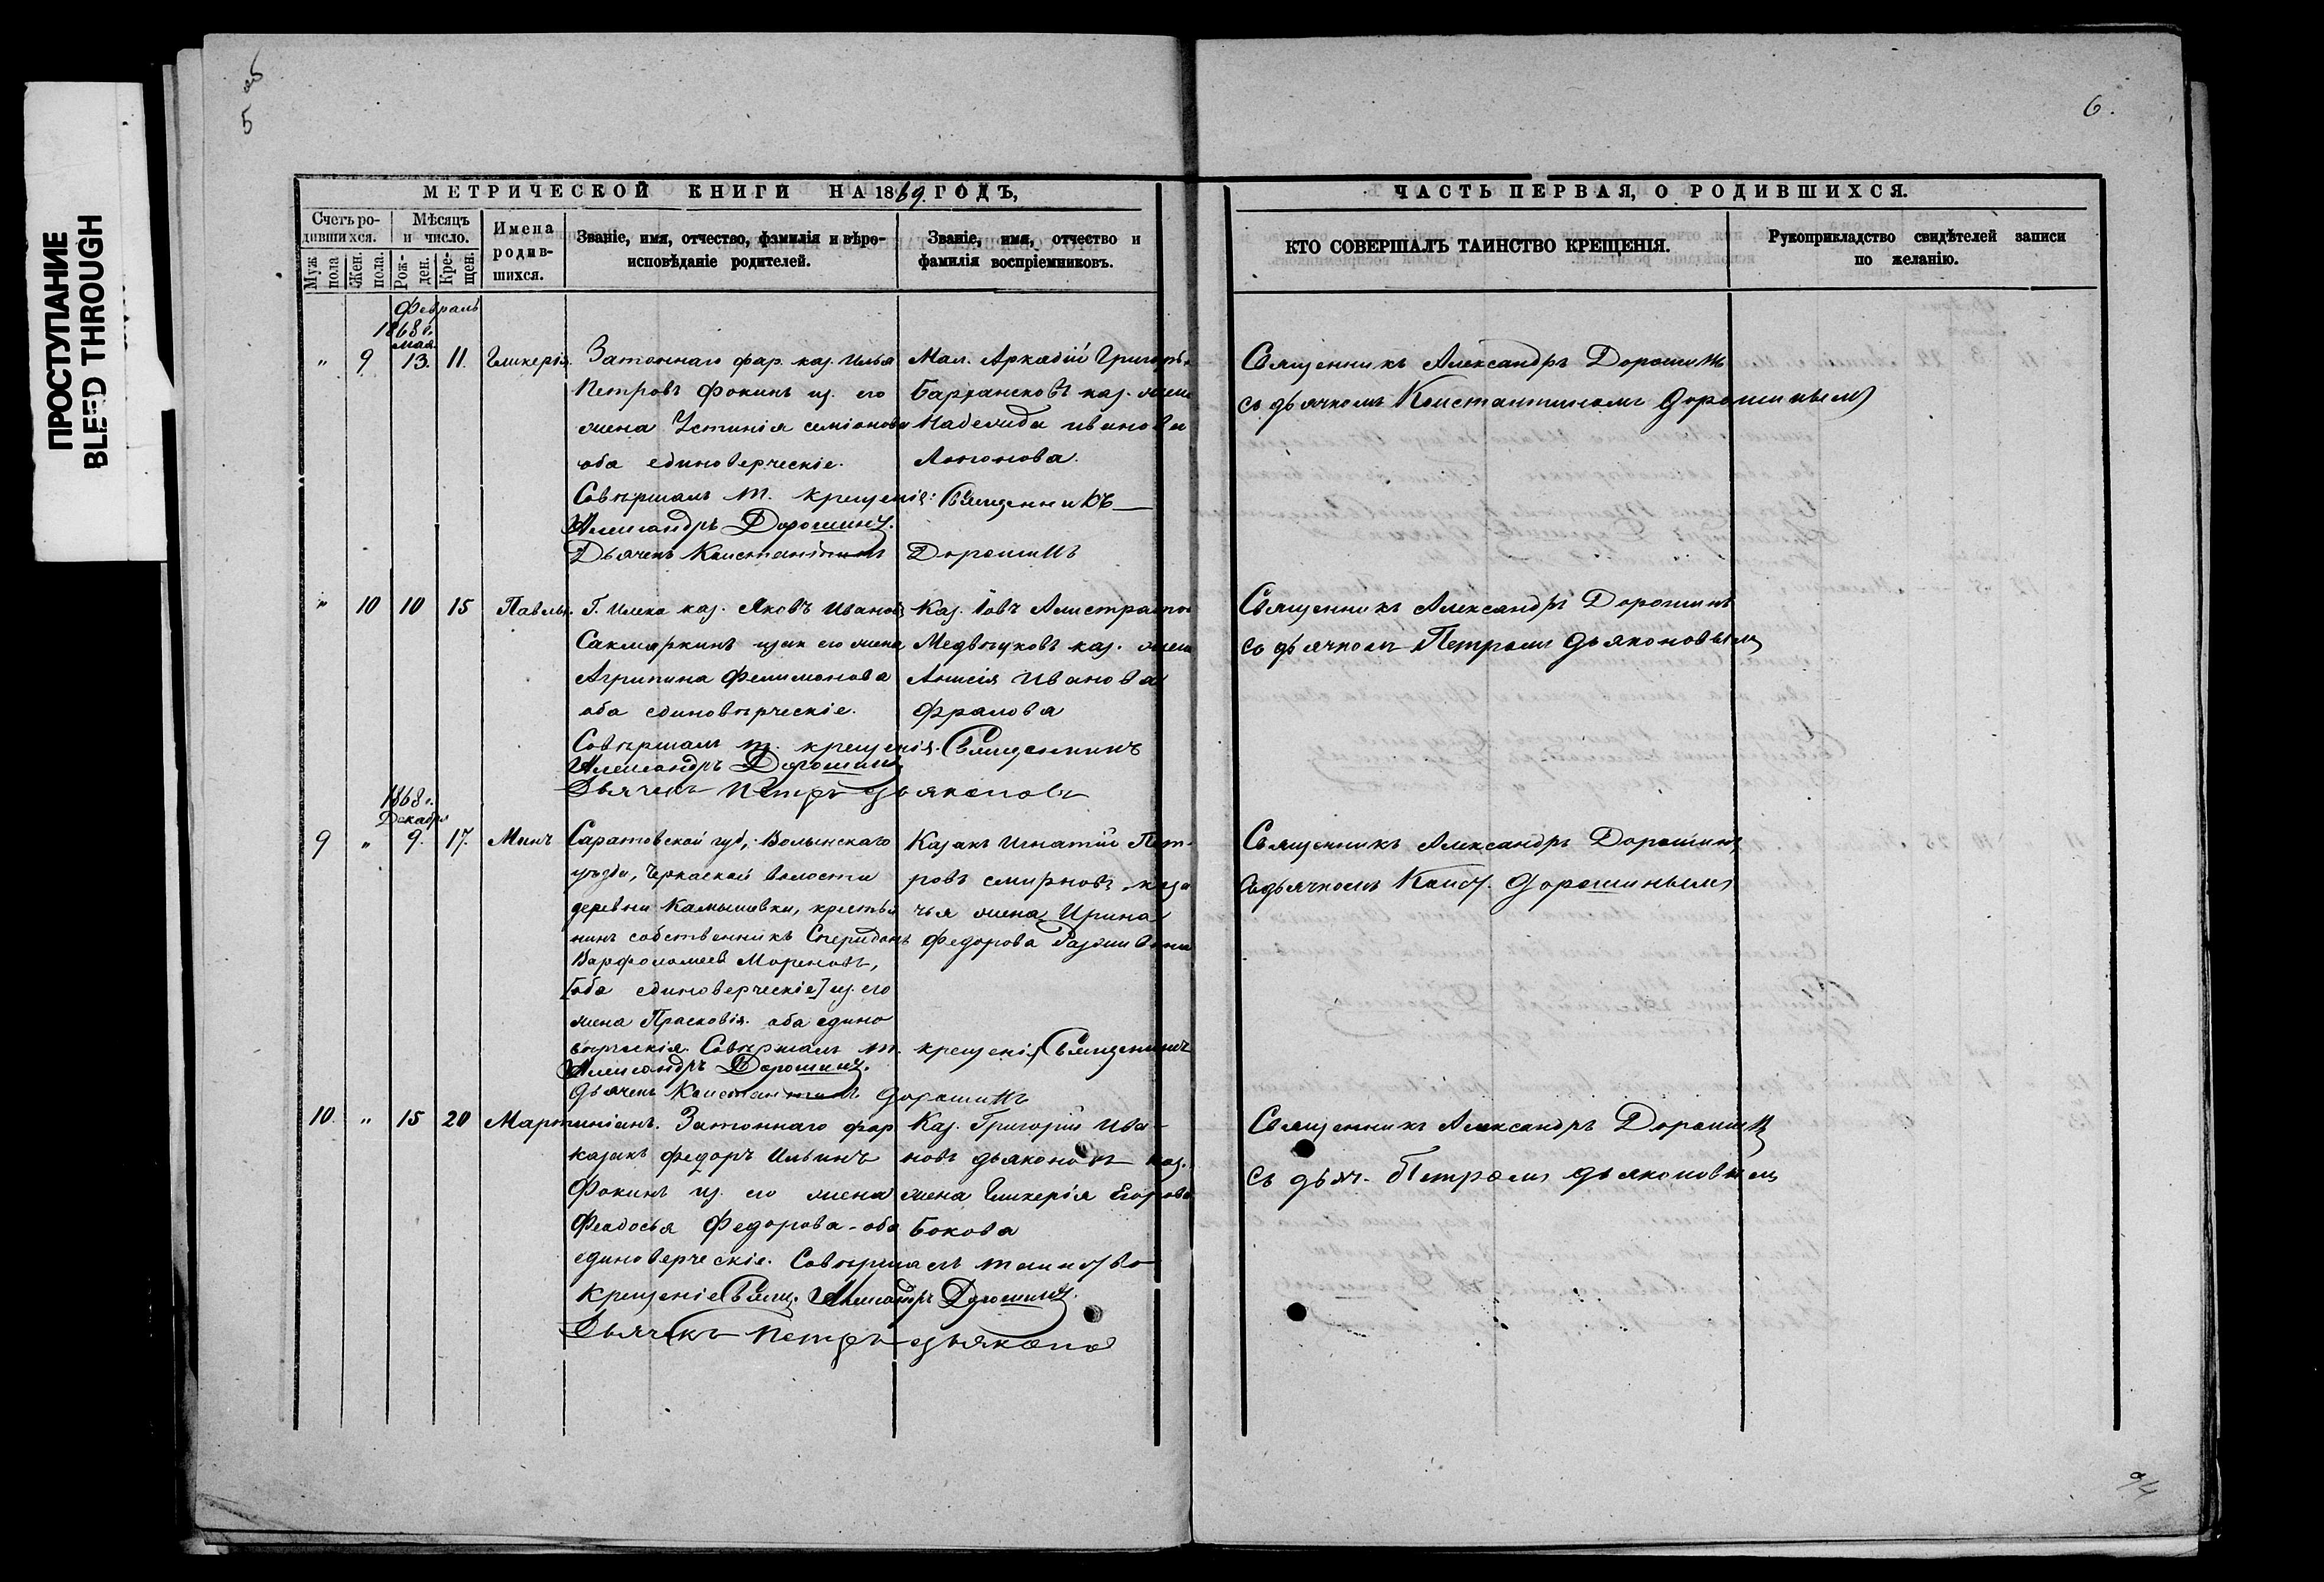 ПРОСТУПАНИЕ
BLEED THROUGH
5
6.
МЕТРИЧЕСКОЙ КНИГИ НА 1869 ГОДЪ,
Счетъ ро-
дившихся.
Мѣсяцъ
и число.
Имена
родив-
шихся.
Званіе, имя, отчество, фамилія и вѣро-
исповѣданіе родителей.
Званіе, имя, отчество и
фамилія воспріемниковъ.
Муж
пола
Жен.
пола.
Рож-
ден.
Кре-
щен.
Февраль
1868 г.
Мая
" 9 13. 11. Гликерія. Затоннаго фар. каз. Илья
Петровъ Фокинъ и з. его
жена Устинія Семіонова
оба единоверческіе.
Мал. Аркадій Григорь
каз. жена
Надежда Иванова
Совѣршалъ т. крещеніе: Священникъ
Александръ Дорошинъ.
Дьячекъ Константинъ Дорошинъ
" 10 10 15 Павелъ. Г. Илека каз. Яковъ Ивановъ
Сакмаркинъ и зак. его жена
Агрипина Филимонова
оба единовѣрческіе.
Каз. Іовъ
Медвѣдковъ каз. жена
Анисія Иванова
Фролова
Совѣршалъ т. крещенія. Священникъ
Александръ Дорошинъ
Дьячекъ Петръ Дьяконовъ
1868 г.
Декабря
9 " 9. 17. Минъ Саратовской губ., Волынскаго
уѣзда, Черкаской волости
деревни Камышевки, крестья
нинъ собственникъ Спиридонъ
Варфоломеевъ
[оба единоверческіе] и з. его
жена Прасковія. оба едино
вѣрческія. Совѣршалъ т. крещенія Священникъ
Казакъ Игнатій Пет-
ровъ Смирновъ каза
чья жена Ирина
Федорова
Александръ Дорошинъ.
Дьячекъ Константинъ Дорошинъ
10. " 15 20 Мартиніанъ. Затоннаго фар
казакъ Федоръ Ильинъ
Фокинъ и з. его жена
Феодосья Федорова - оба
единоверческіе. Совѣршалъ таинство
Каз. Григорій Ива-
новъ Дьяконовъ каз.
жена Гликерія Егорова
Бокова
крещеніе Свящ. Александръ Дорошинъ.
Дьячекъ Петръ Дьяконов
ЧАСТЬ ПЕРВАЯ, О РОДИВШИХСЯ.
КТО СОВЕРШАЛЪ ТАИНСТВО КРЕЩЕНІЯ.
Рукоприкладство свидѣтелей записи
по желанію.
Священникъ Александръ Дорошинъ
со дьячкомъ Константиномъ Дорошинымъ
Священникъ Александръ Дорошинъ
со дьячкомъ Петромъ Дьяконовымъ
Священникъ Александръ Дорошинъ
со дьячкомъ Конст. Дорошинымъ
Священникъ Александръ Дорошинъ
съ дьяч. Петромъ Дьяконовымъ